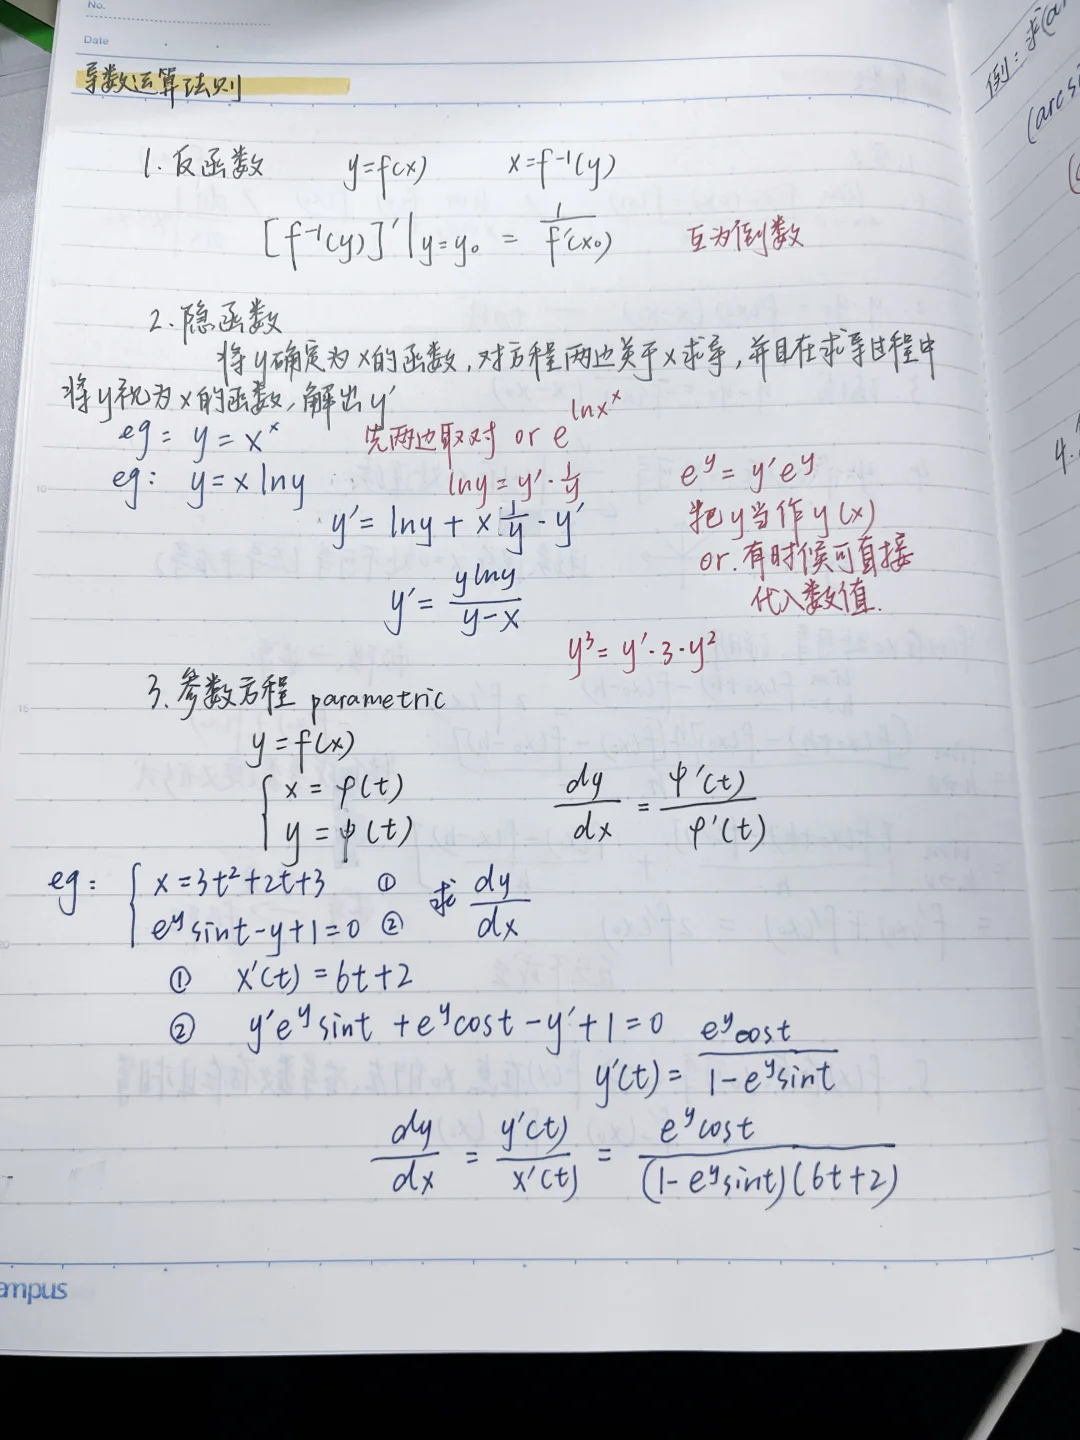 No.
Date
导数运算法则
1. 反函数 y=f(x) x=f⁻¹(y)
[f⁻¹(y)]'|y=y₀ = 1/f'(x₀) 互为倒数
2. 隐函数
将y确定为x的函数,对方程两边关于x求导,并且在求导过程中
将y视为x的函数,解出y'
eg: y=xˣ 先两边取对 or e^(lnxˣ)
eg: y=xlny lny=y'·1/y e^y=y'e^y
y'=lny+x·1/y·y' 把y当作y(x)
or.有时候可直接
y'=ylny/(y-x) 代入数值.
y³=y'·3·y²
3. 参数方程 parametric
y=f(x)
{ x=φ(t) dy/dx = ψ'(t)/φ'(t)
y=ψ(t)
eg: { x=3t²+2t+3 ① 求 dy/dx
e^y sint-y+1=0 ②
① x'(t)=6t+2
② y'e^y sint+e^y cost-y'+1=0
y'(t)= e^y cost/(1-e^y sint)
dy/dx = y'(t)/x'(t) = e^y cost/((1-e^y sint)(6t+2))
ampus
例:求(a
(arcsi
4.